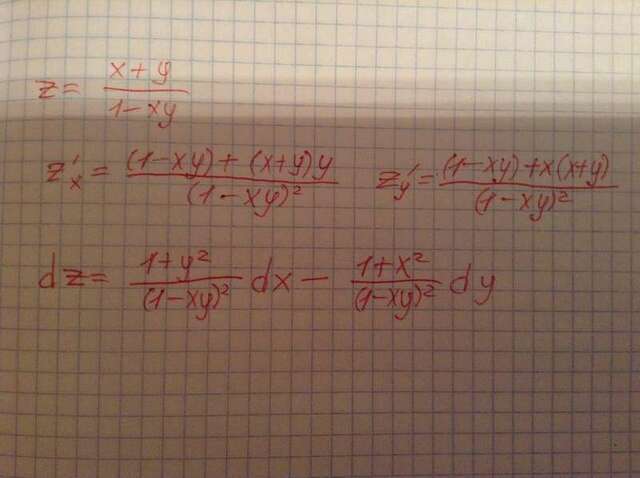 z = (x+y)/(1-xy)
z'ₓ = ((1-xy)+(x+y)y)/(1-xy)² z'ᵧ = ((1-xy)+x(x+y))/(1-xy)²
dz = (1+y²)/(1-xy)² dx - (1+x²)/(1-xy)² dy